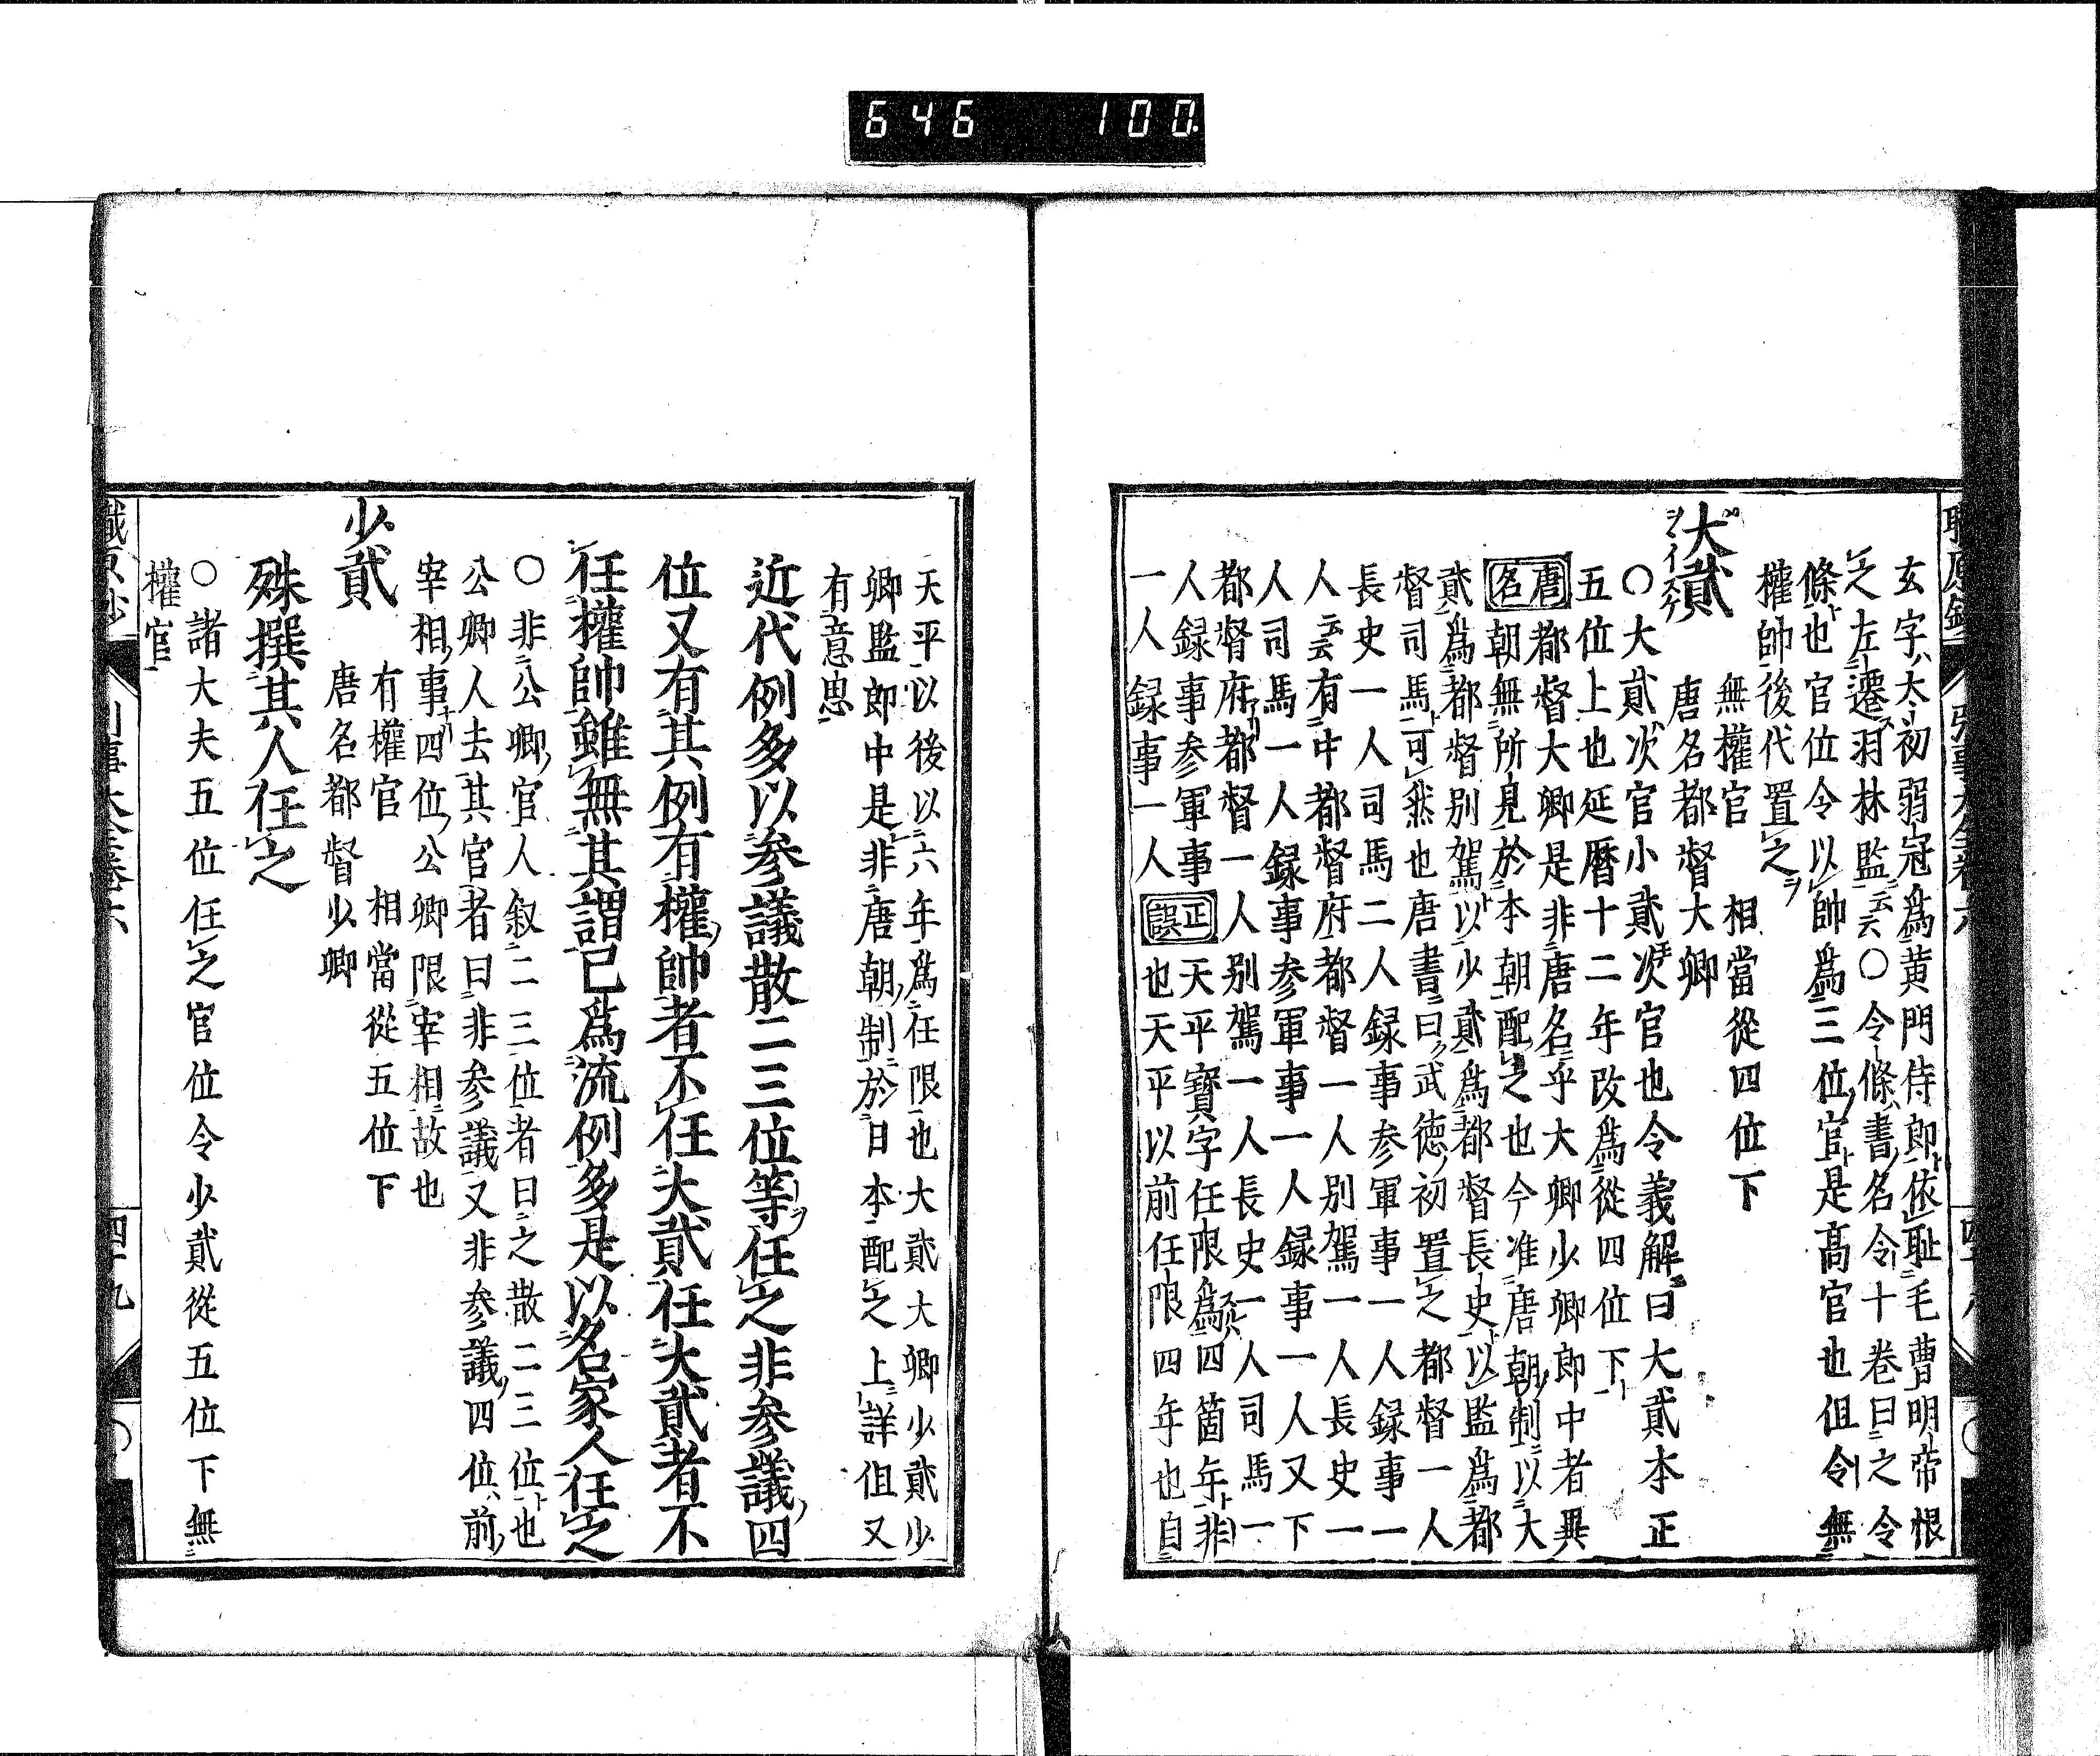 646 100
玄字太初弱冠爲黄門侍郎依耻毛曹明帝恨
之左遷羽林監云云○令條書名令十巻曰之令
條也官位令以帥爲三位官是髙官也但令無
權帥後代置之
大貳 無權官 相當從四位下
唐名都督大卿
○大貳次官小貳次官也令義解曰大貳本正
五位上也延暦十二年改爲從四位下
唐名 都督大卿是非唐名乎大卿少卿郎中者異
朝無所見於本朝配之也今准唐朝制以大
貳爲都督别駕以少貳爲都督長史以監爲都
督司馬可然也唐書曰武徳初置之都督一人
長史一人司馬二人録事参軍事一人録事一
人云云有中都督府都督一人别駕一人長史一
人司馬一人録事参軍事一人録事一人又下
都督府都督一人别駕一人長史一人司馬一
人録事参軍事 天平寳字任限爲四箇年非
一人録事一人 正誤 也天平以前任限四年也自
天平以後以六年爲任限也大貳大卿少貳少
卿監郎中是非唐朝制於日本配之上詳但又
有意思
近代例多以参議散二三位等任之非参議四
位又有其例有權帥者不任大貳任大貳者不
任權帥雖無其謂已爲流例多是以名家人任之
○非公卿官人叙二三位者曰之散二三位也
公卿人去其官者曰非参議又非参議四位前
宰相事四位公卿限宰相故也
少貳 有權官 相當從五位下
唐名都督少卿
殊撰其人任之
○諸大夫五位任之官位令少貳從五位下無
權官